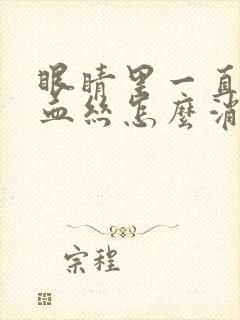 眼睛里一直
血丝怎麼消
宗程